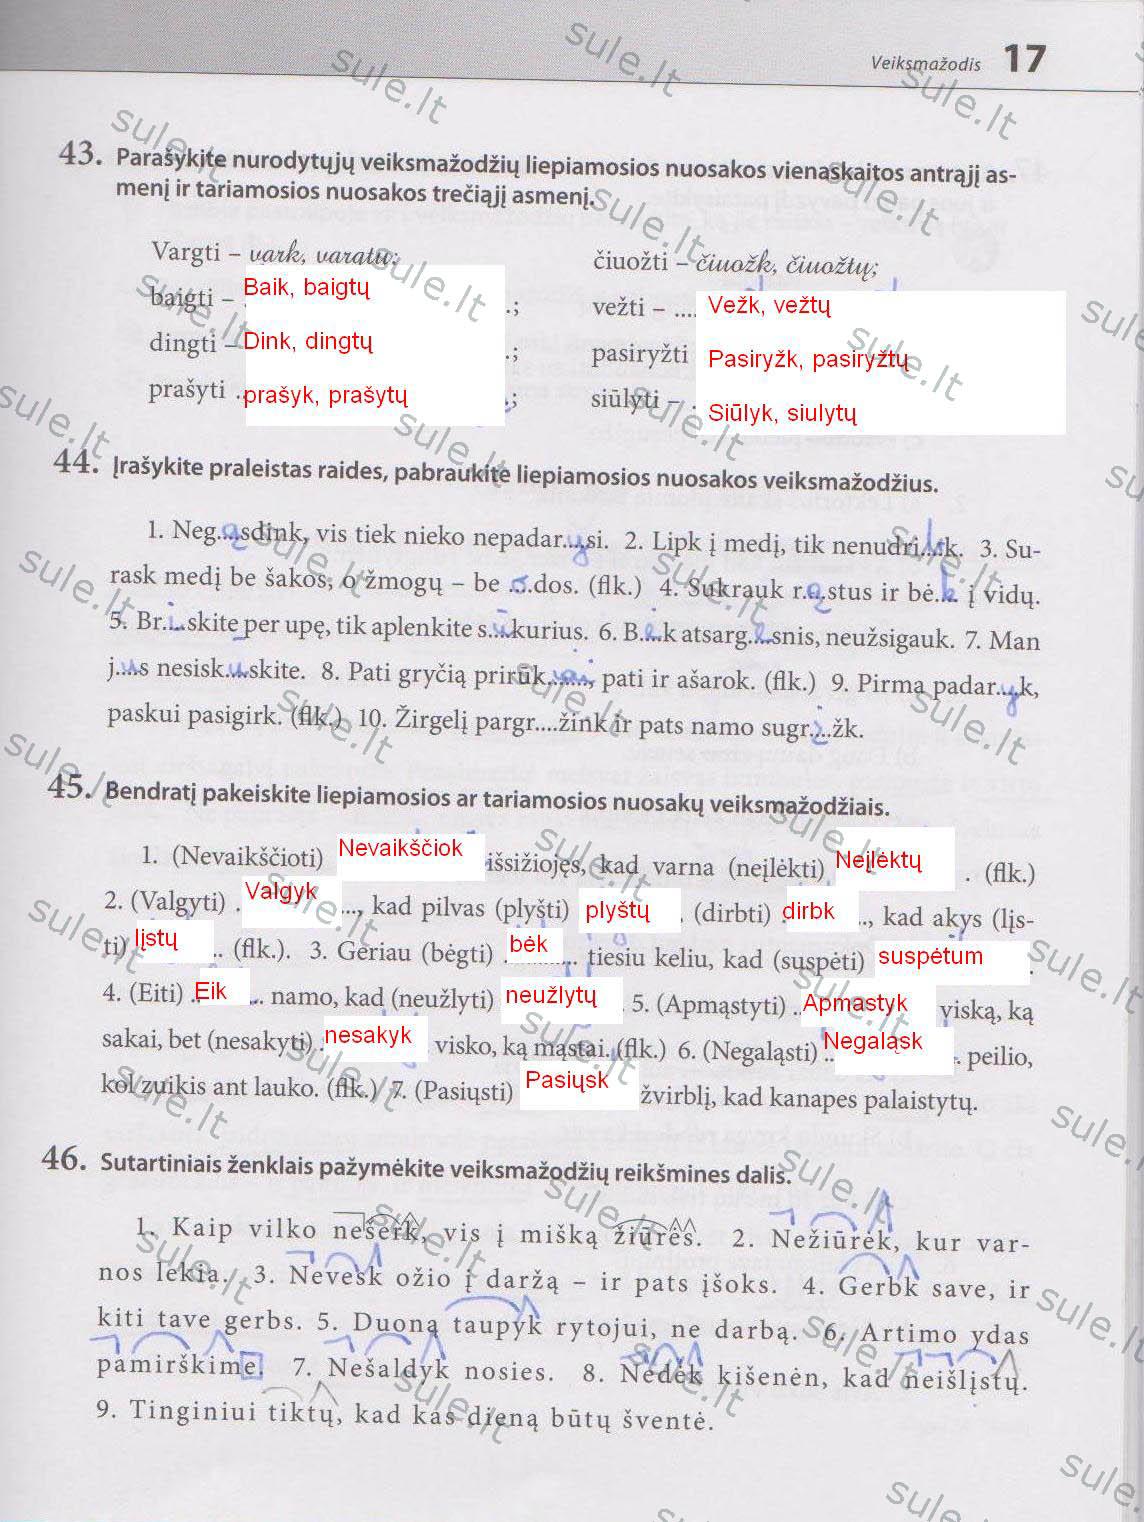 Veiksmažodis 17
43. Parašykite nurodytųjų veiksmažodžių liepiamosios nuosakos vienaskaitos antrąjį as-
menį ir tariamosios nuosakos trečiąjį asmenį.
Vargti – vark, vargtų; čiuožti – čiuožk, čiuožtų;
baigti – Baik, baigtų .; vežti – .... Vežk, vežtų
dingti – Dink, dingtų .; pasiryžti Pasiryžk, pasiryžtų
prašyti .. prašyk, prašytų ; siūlyti – . Siūlyk, siulytų
44. Įrašykite praleistas raides, pabraukite liepiamosios nuosakos veiksmažodžius.
1. Neg..ą..sdink, vis tiek nieko nepadar..y..si. 2. Lipk į medį, tik nenudri..k..k. 3. Su-
rask medį be šakos, o žmogų – be ..o..dos. (flk.) 4. Sukrauk r..ą..stus ir bė..k.. į vidų.
5. Br..i..skite per upę, tik aplenkite s..ū..kurius. 6. B..ė..k atsarg..e..snis, neužsigauk. 7. Man
j..u..s nesisk..u..skite. 8. Pati gryčią prirūk..ai.., pati ir ašarok. (flk.) 9. Pirma padar..y..k,
paskui pasigirk. (flk.) 10. Žirgelį pargr....žink ir pats namo sugr..į..žk.
45. Bendratį pakeiskite liepiamosios ar tariamosios nuosakų veiksmažodžiais.
1. (Nevaikščioti) Nevaikščiok išsižiojęs, kad varna (neįlėkti) Neįlėktų . (flk.)
2. (Valgyti) . Valgyk ..., kad pilvas (plyšti) plyštų . (dirbti) dirbk .., kad akys (lįs-
ti) lįstų .. (flk.). 3. Geriau (bėgti) . bėk .... tiesiu keliu, kad (suspėti) suspėtum .
4. (Eiti) . Eik .. namo, kad (neužlyti) neužlytų . 5. (Apmąstyti) .. Apmastyk viską, ką
sakai, bet (nesakyti) . nesakyk visko, ką mąstai. (flk.) 6. (Negaląsti) .. Negaląsk . peilio,
kol zuikis ant lauko. (flk.) 7. (Pasiųsti) Pasiųsk žvirblį, kad kanapes palaistytų.
46. Sutartiniais ženklais pažymėkite veiksmažodžių reikšmines dalis.
1. Kaip vilko nešerk, vis į mišką žiūrės. 2. Nežiūrėk, kur var-
nos lekia. 3. Nevesk ožio į daržą – ir pats įšoks. 4. Gerbk save, ir
kiti tave gerbs. 5. Duoną taupyk rytojui, ne darbą. 6. Artimo ydas
pamirškime. 7. Nešaldyk nosies. 8. Nedėk kišenėn, kad neišlįstų.
9. Tinginiui tiktų, kad kas dieną būtų šventė.
sule.lt